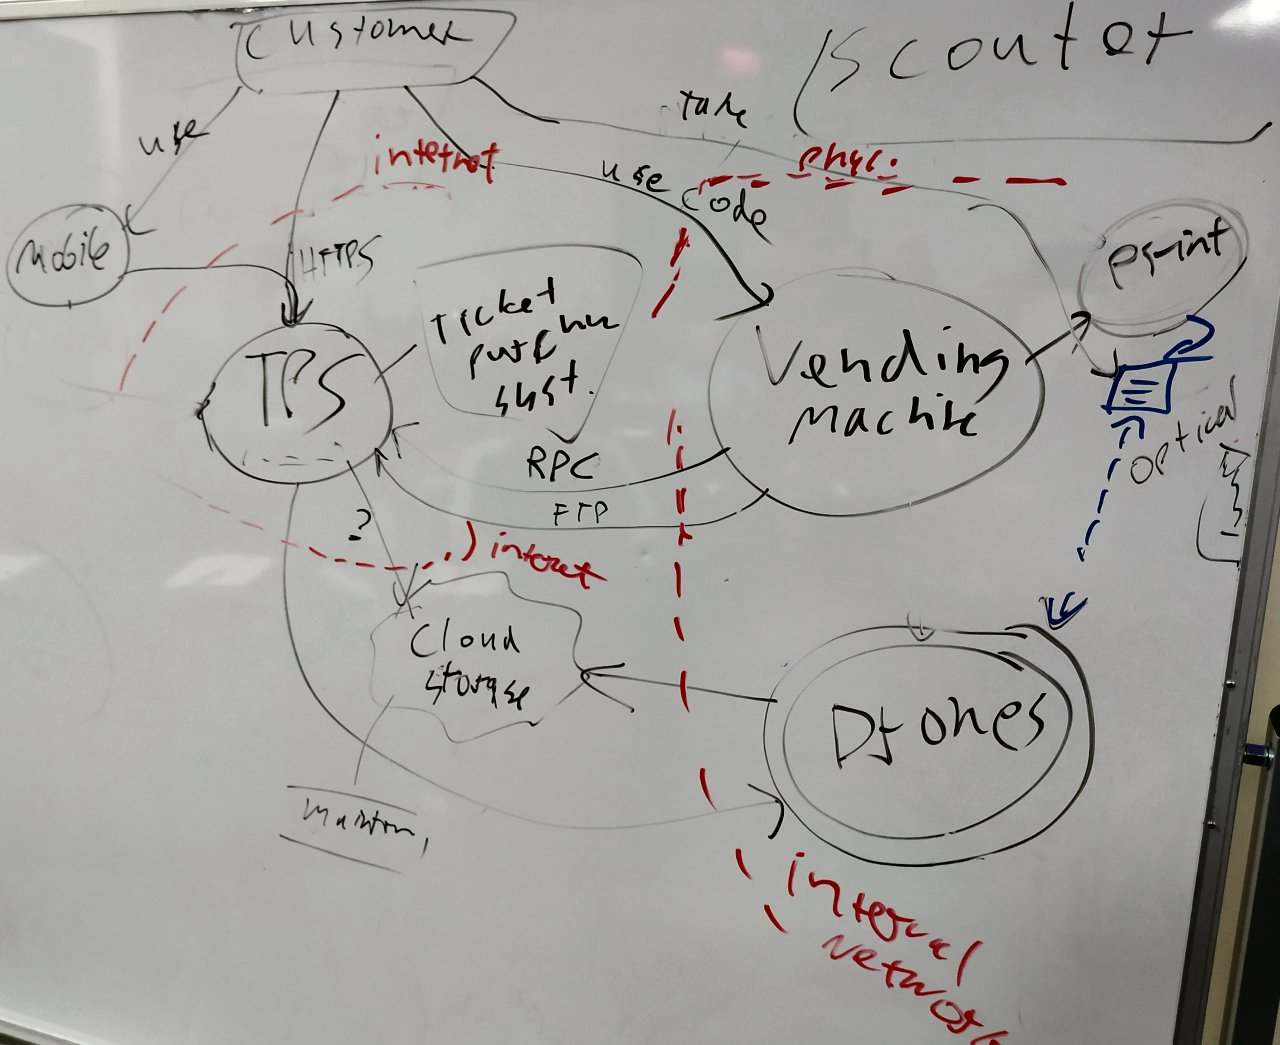 Customer
Scouter
take
use
internet
phys.
use
code
Mobile
HTTPS
print
Ticket
TPS
syst.
Vending
Machine
optical
RPC
FTP
?
internet
Cloud
storage
Drones
internal
network